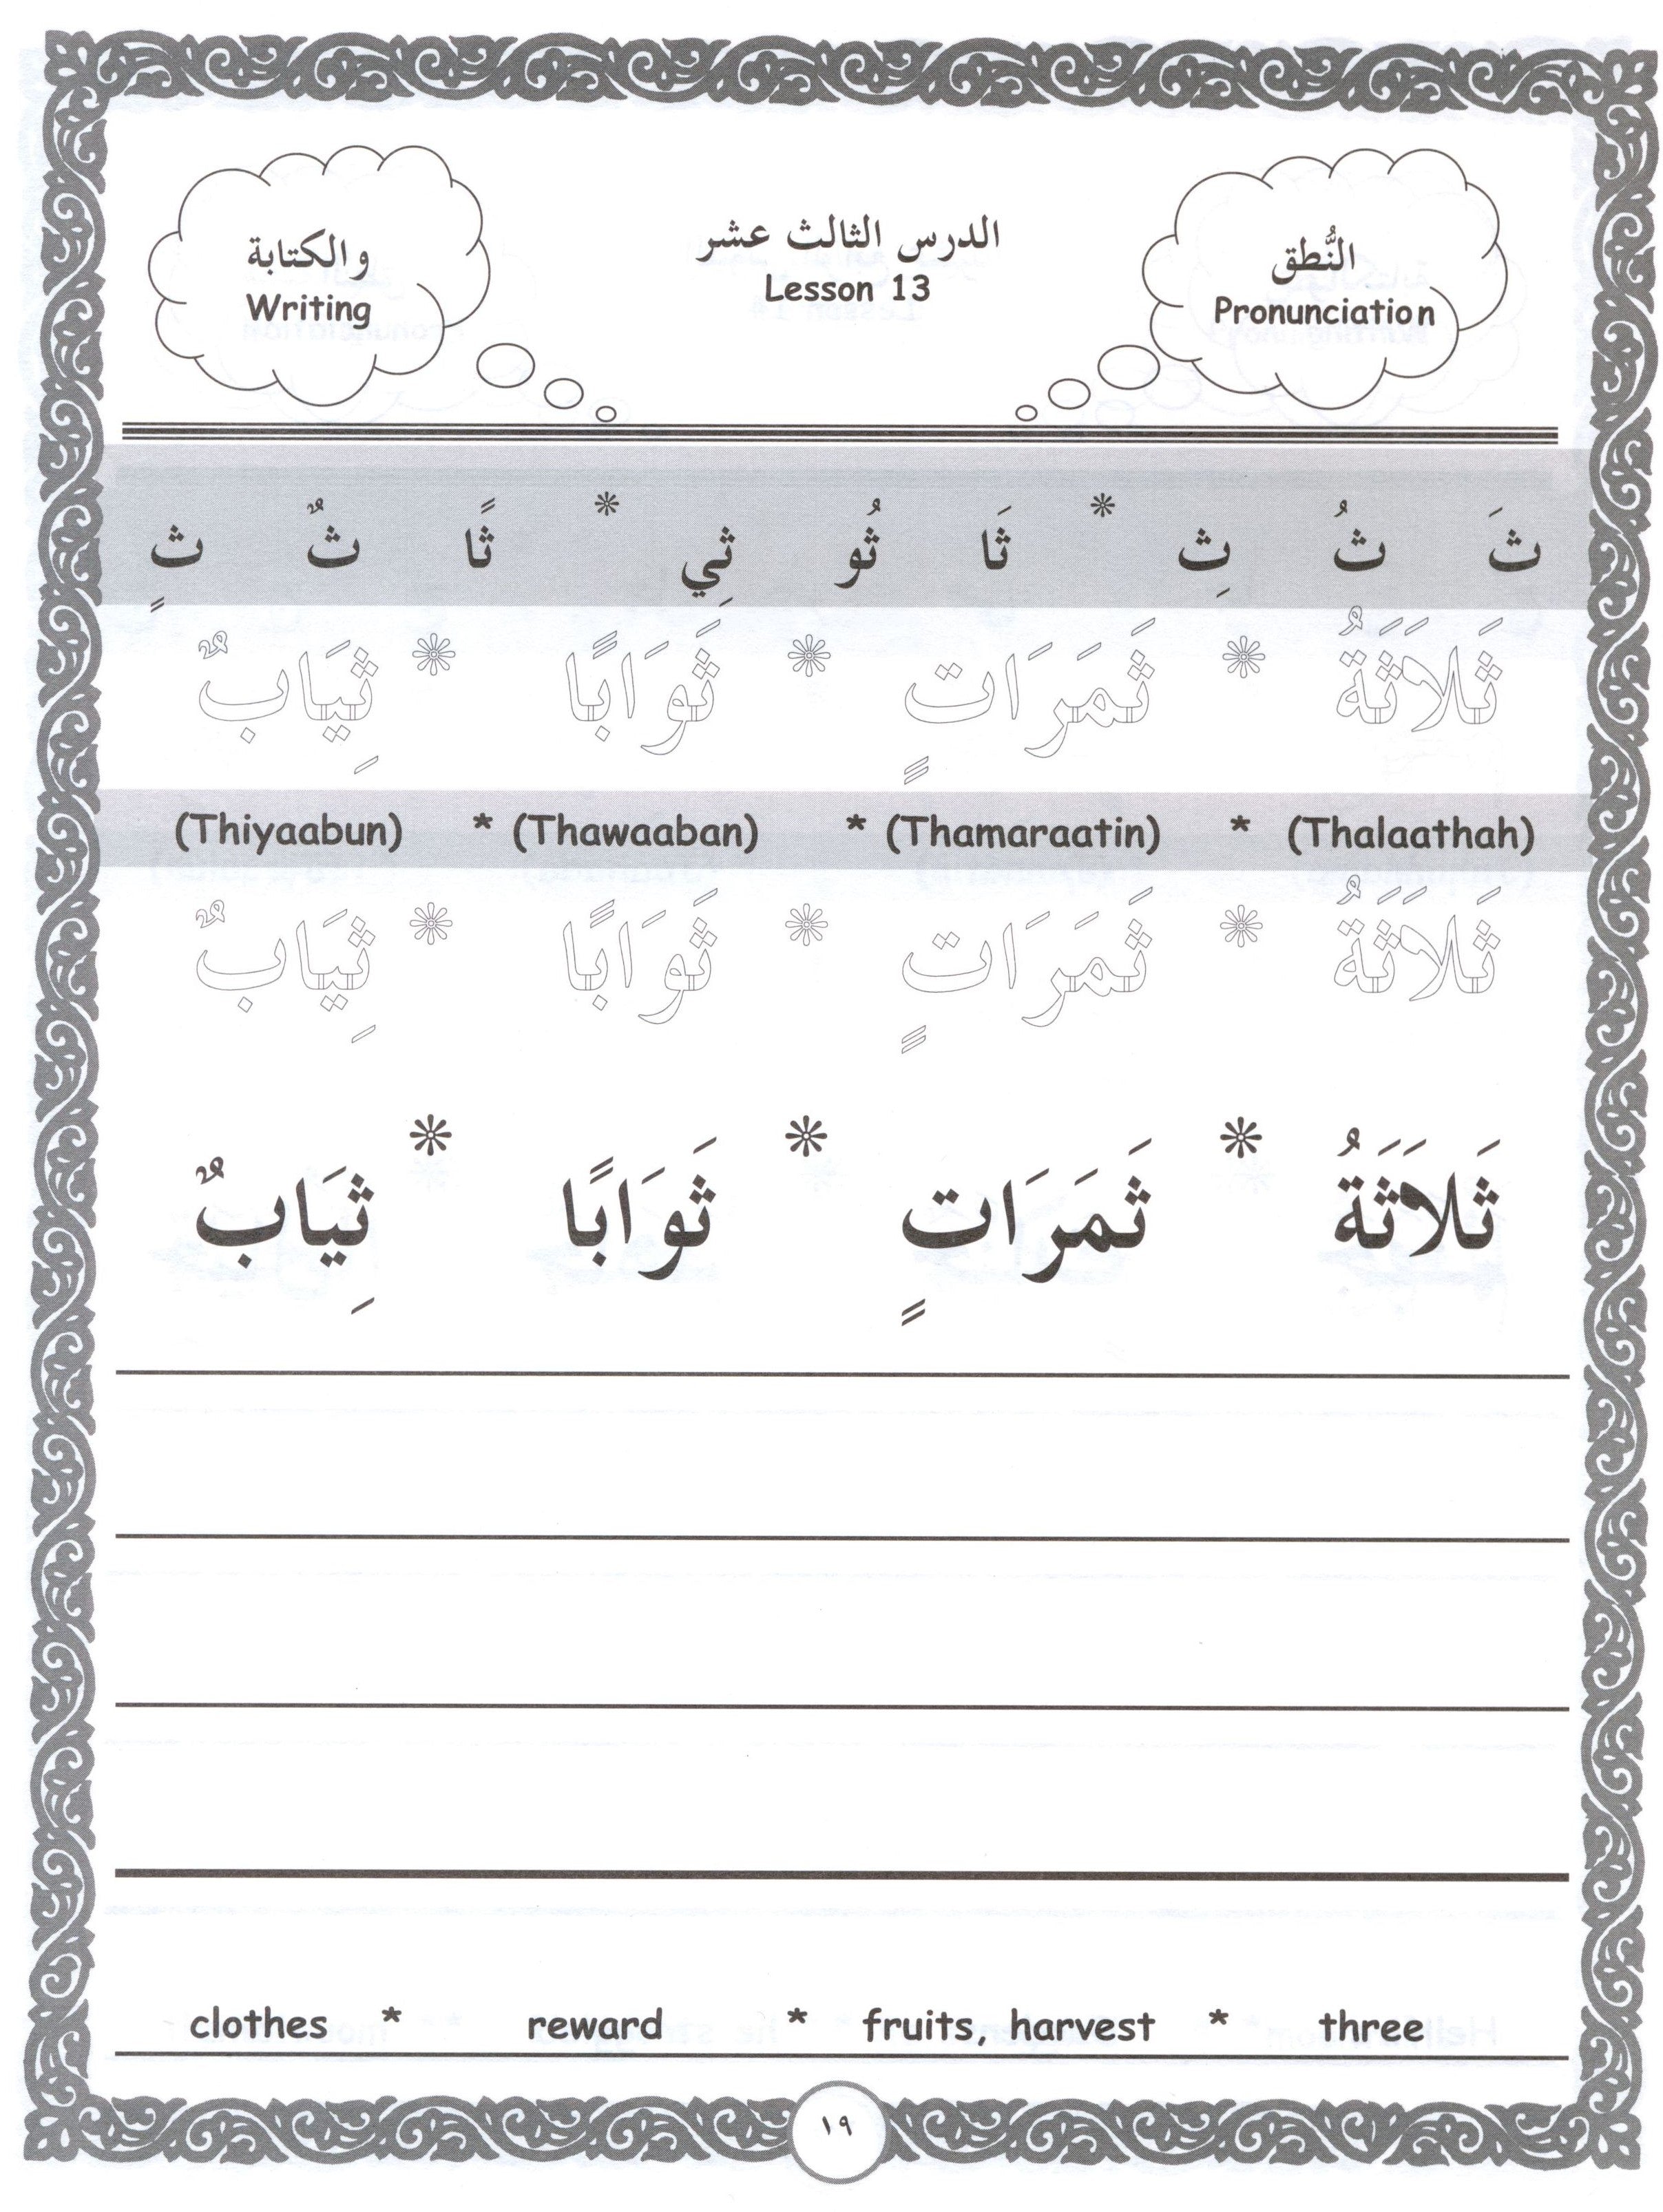 النُّطق
Pronunciation
الدرس الثالث عشر
Lesson 13
والكتابة
Writing
ثَ ثُ ثِ * ثَا ثُو ثِي * ثًا ثٌ ثٍ
ثَلَاثَةُ * ثَمَرَاتٍ * ثَوَابًا * ثِيَابٌ
(Thiyaabun) * (Thawaaban) * (Thamaraatin) * (Thalaathah)
ثَلَاثَةُ * ثَمَرَاتٍ * ثَوَابًا * ثِيَابٌ
ثَلَاثَةُ * ثَمَرَاتٍ * ثَوَابًا * ثِيَابٌ
clothes * reward * fruits, harvest * three
١٩